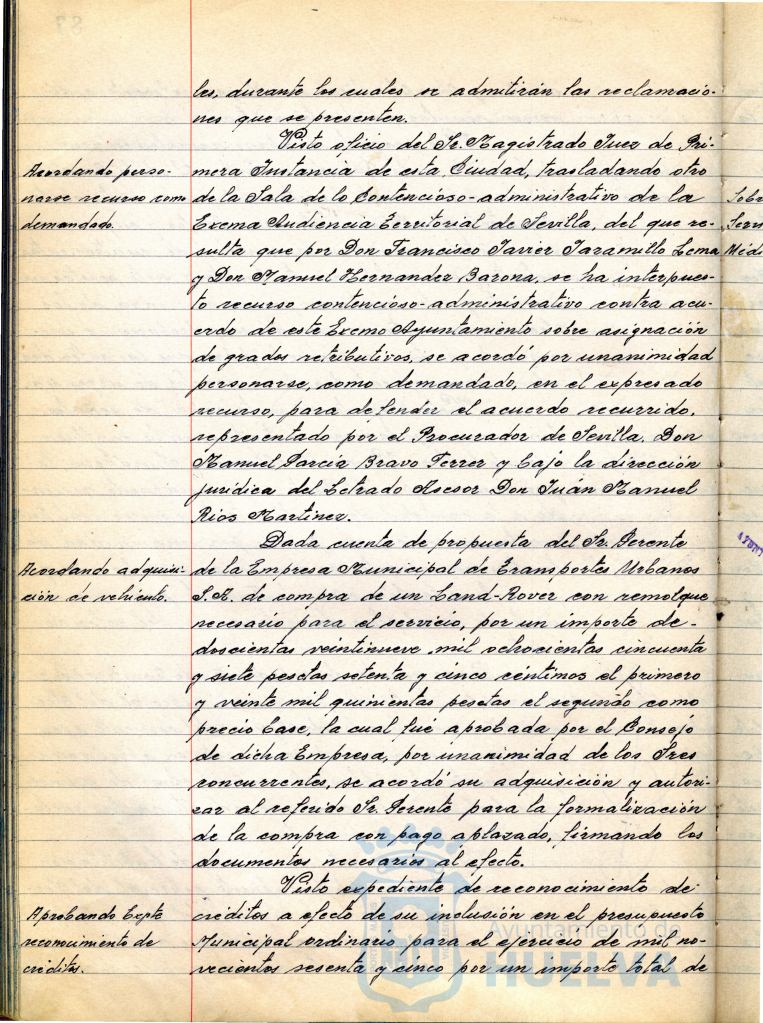 les, durante los cuales se admitirán las reclamacio-
nes que se presenten.
Visto oficio del Sr. Magistrado Juez de Pri-
Acordando perso-
narse recurso como
demandado.
mera Instancia de esta Ciudad, trasladando otro
de la Sala de lo Contencioso-administrativo de la
Excma Audiencia Territorial de Sevilla, del que re-
sulta que por Don Francisco Javier Jaramillo Lema
y Don Manuel Hernandez Barona, se ha interpues-
to recurso contencioso-administrativo contra acu-
erdo de este Excmo Ayuntamiento sobre asignación
de grados retributivos, se acordó por unanimidad
personarse, como demandado, en el expresado
recurso, para defender el acuerdo recurrido,
representado por el Procurador de Sevilla, Don
Manuel García Bravo Ferrer y bajo la dirección
jurídica del Letrado Asesor Don Juán Manuel
Rios Martinez.
Dada cuenta de propuesta del Sr. Gerente
Acordando adquisi-
ción de vehículo.
de la Empresa Municipal de Transportes Urbanos
S.A. de compra de un Land-Rover con remolque
necesario para el servicio, por un importe de-
doscientas veintinueve mil ochocientas cincuenta
y siete pesetas setenta y cinco céntimos el primero
y veinte mil quinientas pesetas el segundo como
precio base, la cual fué aprobada por el Consejo
de dicha Empresa, por unanimidad de los Sres
concurrentes, se acordó su adquisición y autori-
zar al referido Sr. Gerente para la formalización
de la compra con pago aplazado, firmando los
documentos necesarios al efecto.
Visto expediente de reconocimiento de
Aprobando Expte
reconocimiento de
créditos.
créditos a efecto de su inclusión en el presupuesto
Municipal ordinario para el ejercicio de mil no-
vecientos sesenta y cinco por un importe total de
Sobr
Serv
Médi
Ayuntamiento de
HUELVA